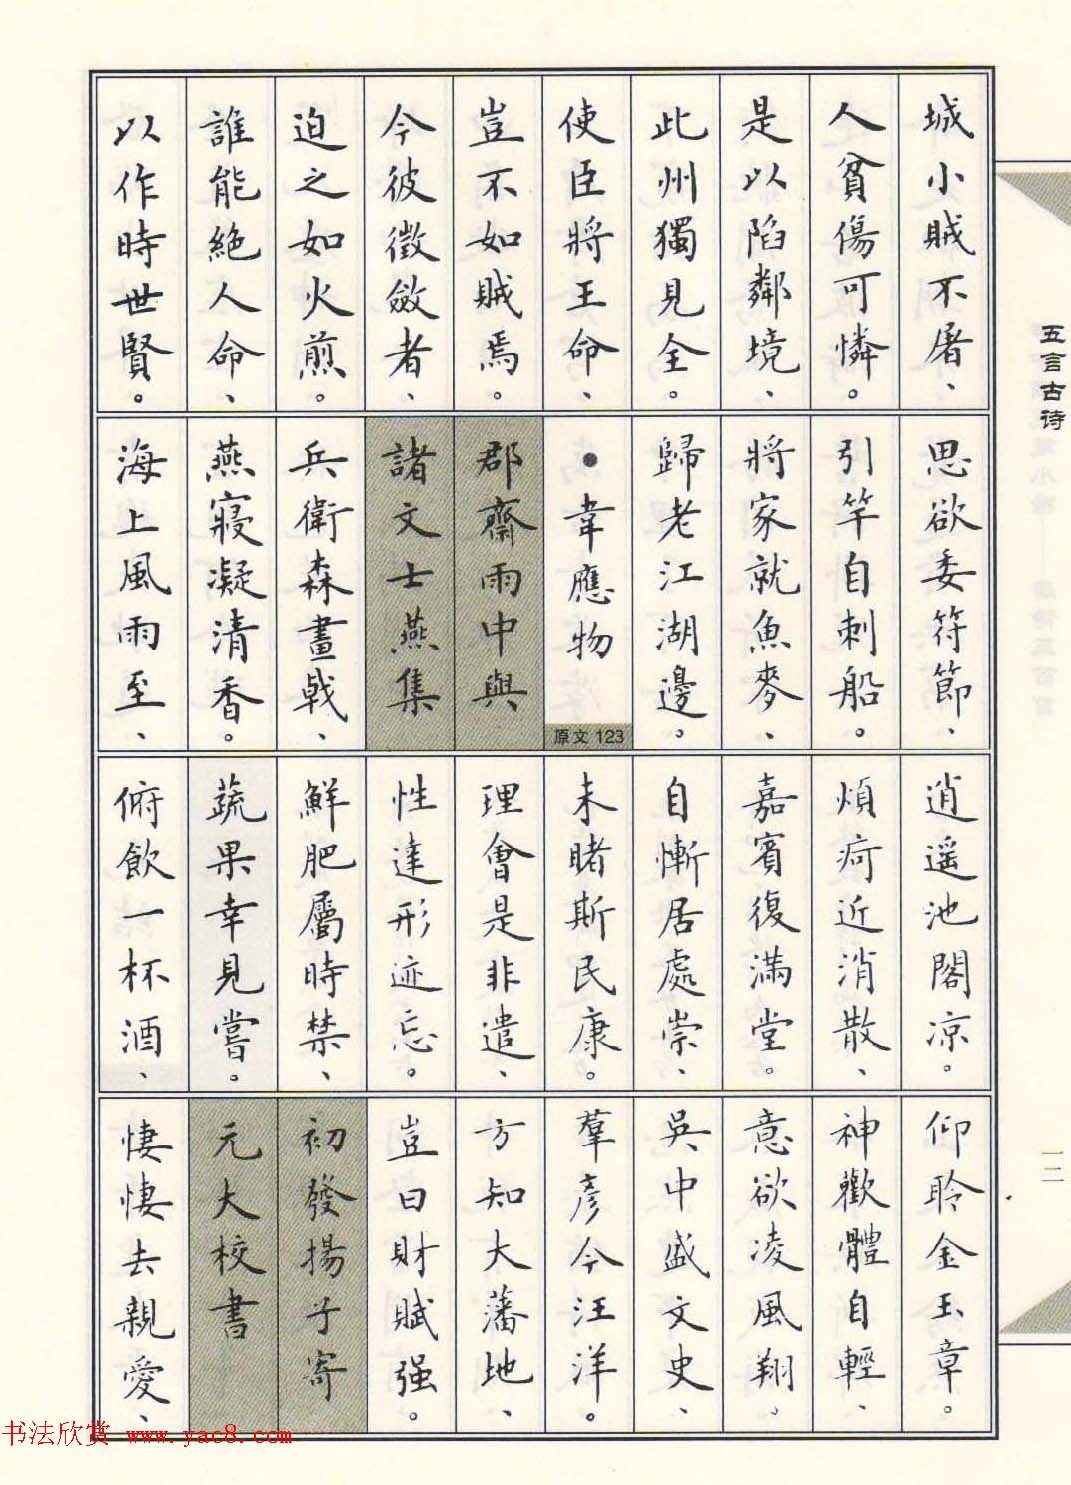 五言古诗
城小賊不屠、
人貧傷可憐。
是以陷鄰境、
此州獨見全。
使臣將王命、
豈不如賊焉。
今彼徵斂者、
迫之如火煎。
誰能絕人命、
以作時世賢。
思欲委符節、
引竿自刺船。
將家就魚麥、
歸老江湖邊。
●韋應物
原文 123
郡齋雨中與
諸文士燕集
兵衛森畫戟、
燕寢凝清香。
海上風雨至、
逍遥池閣凉。
煩疴近消散、
嘉賓復滿堂。
自慚居處崇、
未睹斯民康。
理會是非遣、
性達形迹忘。
鮮肥屬時禁、
蔬果幸見嘗。
俯飲一杯酒、
仰聆金玉章。
神歡體自輕、
意欲凌風翔、
吳中盛文史、
羣彥今汪洋。
方知大藩地、
豈曰財賦强。
初發揚子寄
元大校書
悽悽去親愛、
一二
书法欣赏 www.yac8.com